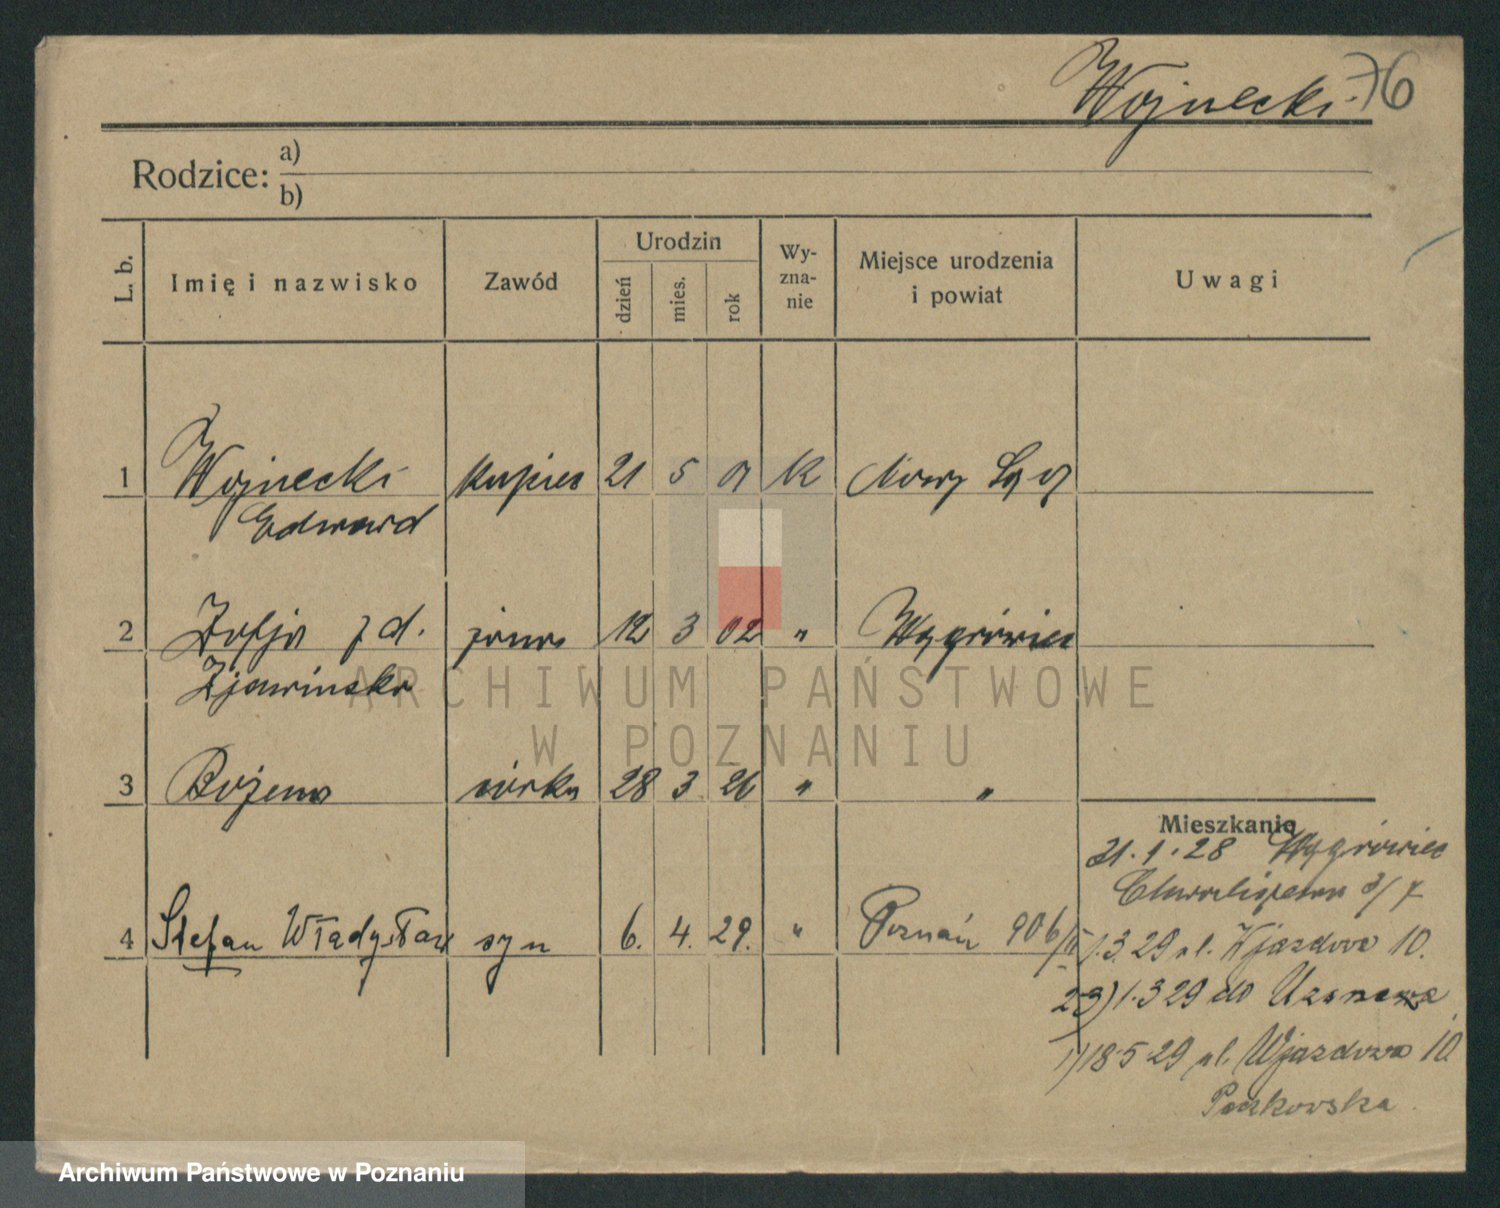 Wojnecki 76
Rodzice: a)
b)
L. b.
Imię i nazwisko
Zawód
Urodzin
dzień
mies.
rok
Wy-
zna-
nie
Miejsce urodzenia
i powiat
Uwagi
1 Wojnecki kupiec 21 5 01 K Nowy Sąg
Edward
2 Zofja z d. żona 12 3 02 " Wągrówiec
Zjawińska
ARCHIWUM PAŃSTWOWE
W POZNANIU
3 Bożena córka 28 3 26 " "
Mieszkanie
31.1.28 Wągrówiec
3/7
4 Stefan Władysław syn 6. 4. 29. " Poznań 906/II
1.3.29 ul. Wjazdowa 10.
23) 1.3 29 do
1) 18 5 29 ul. Wjazdowa 10.
Paczkowska
Archiwum Państwowe w Poznaniu